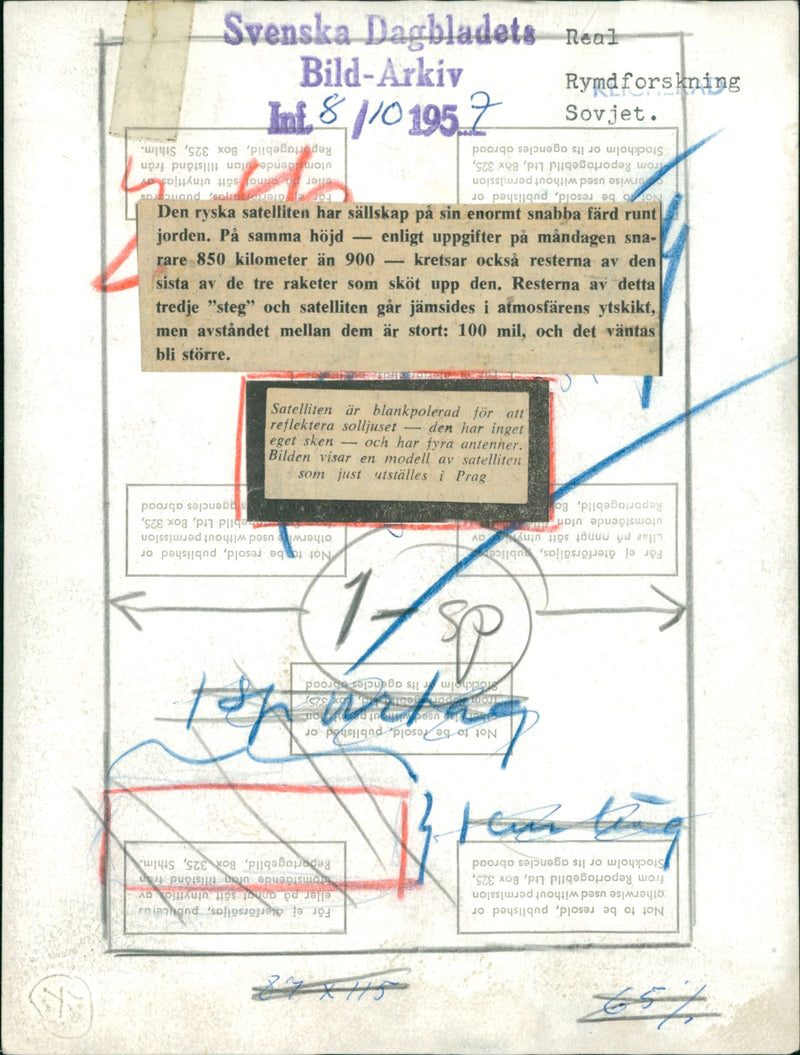 Svenska Dagbladets
Bild-Arkiv
Inf. 8/10 1957
Real
Rymdforskning
Sovjet.
Reportagebild, Box 325, Sthlm.
utomstående utan tillstånd från
eller på annat sätt utnyttjas av
För ej återförsäljas, publiceras
Stockholm or its agencies abroad
from Reportagebild Ltd, Box 325,
otherwise used without permission
Not to be resold, published or
Den ryska satelliten har sällskap på sin enormt snabba färd runt
jorden. På samma höjd — enligt uppgifter på måndagen sna-
rare 850 kilometer än 900 — kretsar också resterna av den
sista av de tre raketer som sköt upp den. Resterna av detta
tredje "steg" och satelliten går jämsides i atmosfärens ytskikt,
men avståndet mellan dem är stort: 100 mil, och det väntas
bli större.
Satelliten är blankpolerad för att
reflektera solljuset — den har inget
eget sken — och har fyra antenner.
Bilden visar en modell av satelliten
som just utställes i Prag
agencies abroad
Ltd, Box 325,
otherwise used without permission
Not to be resold, published or
Reportagebild, Bo
utomstående utan
eller på annat sätt utnyttjas av
För ej återförsäljas, publiceras
1-sp
Stockholm or its agencies abroad
Not to be resold, published or
1 sp
Reportagebild, Box 325, Sthlm.
utomstående utan tillstånd från
eller på annat sätt utnyttjas av
För ej återförsäljas, publiceras
Stockholm or its agencies abroad
from Reportagebild Ltd, Box 325,
otherwise used without permission
Not to be resold, published or
87 x 115
65%